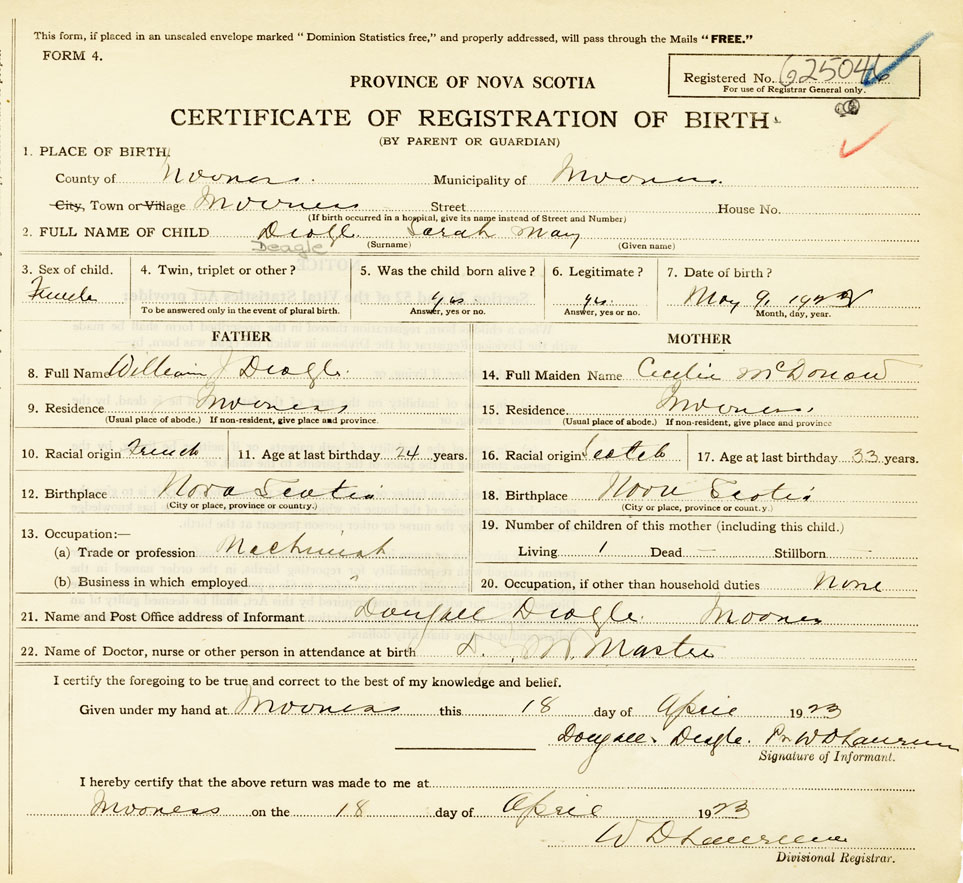 This form, if placed in an unsealed envelope marked "Dominion Statistics free," and properly addressed, will pass through the Mails "FREE."
FORM 4.
Registered No. 625046
For use of Registrar General only.
PROVINCE OF NOVA SCOTIA
CERTIFICATE OF REGISTRATION OF BIRTH
(BY PARENT OR GUARDIAN)
1. PLACE OF BIRTH
County of Inverness. Municipality of Inverness.
City, Town or Village Inverness Street House No.
(If birth occurred in a hospital, give its name instead of Street and Number)
2. FULL NAME OF CHILD Deagle Sarah May
Deagle (Surname) (Given name)
3. Sex of child. 4. Twin, triplet or other? 5. Was the child born alive? 6. Legitimate? 7. Date of birth?
Female yes yes. May 9, 1922
To be answered only in the event of plural birth. Answer, yes or no. Answer, yes or no. Month, day, year.
FATHER MOTHER
8. Full Name William J Deagle. 14. Full Maiden Name Cecilie McDonald
9. Residence Inverness 15. Residence. Inverness.
(Usual place of abode.) If non-resident, give place and province. (Usual place of abode.) If non-resident, give place and province
10. Racial origin French 11. Age at last birthday 24 years. 16. Racial origin Scotch 17. Age at last birthday 33 years.
12. Birthplace Nova Scotia 18. Birthplace Nova Scotia
(City or place, province or country.) (City or place, province or country.)
13. Occupation:— 19. Number of children of this mother (including this child.)
(a) Trade or profession Machinist Living 1 Dead — Stillborn —
(b) Business in which employed " 20. Occupation, if other than household duties None
21. Name and Post Office address of Informant Dougall Deagle. Inverness
22. Name of Doctor, nurse or other person in attendance at birth McMaster
I certify the foregoing to be true and correct to the best of my knowledge and belief.
Given under my hand at Inverness this 18 day of April 1923
Dougall Deagle. Pr W D Lawrence
Signature of Informant.
I hereby certify that the above return was made to me at
Inverness on the 18 day of April 1923
W D Lawrence
Divisional Registrar.